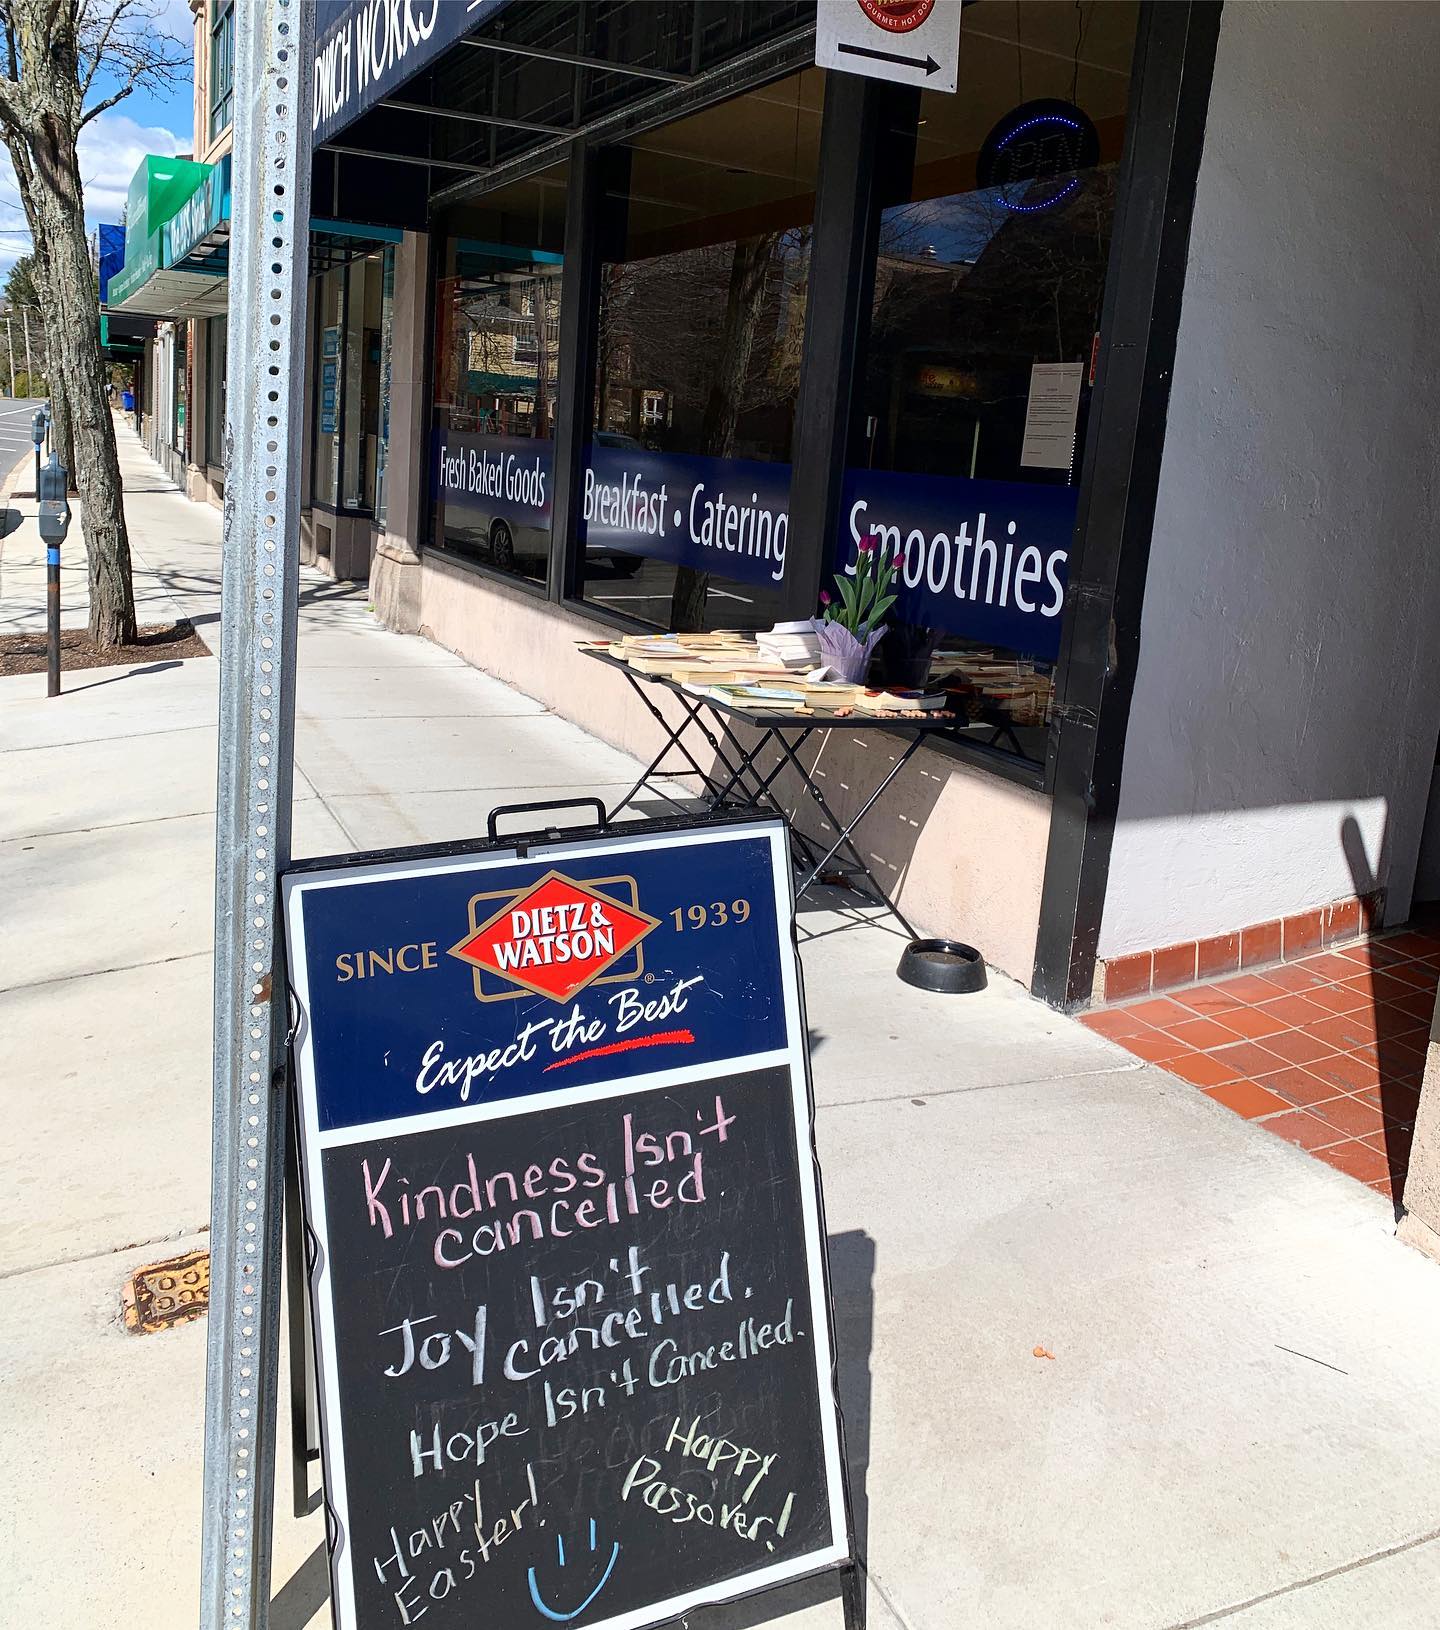 WORKS
GOURMET HOT DOGS
OPEN
Fresh Baked Goods
Breakfast • Catering
Smoothies
SINCE DIETZ & WATSON 1939
®
Expect the Best
Kindness Isn't
cancelled.
Joy Isn't
cancelled.
Hope Isn't Cancelled.
Happy
Easter!
Happy
Passover!